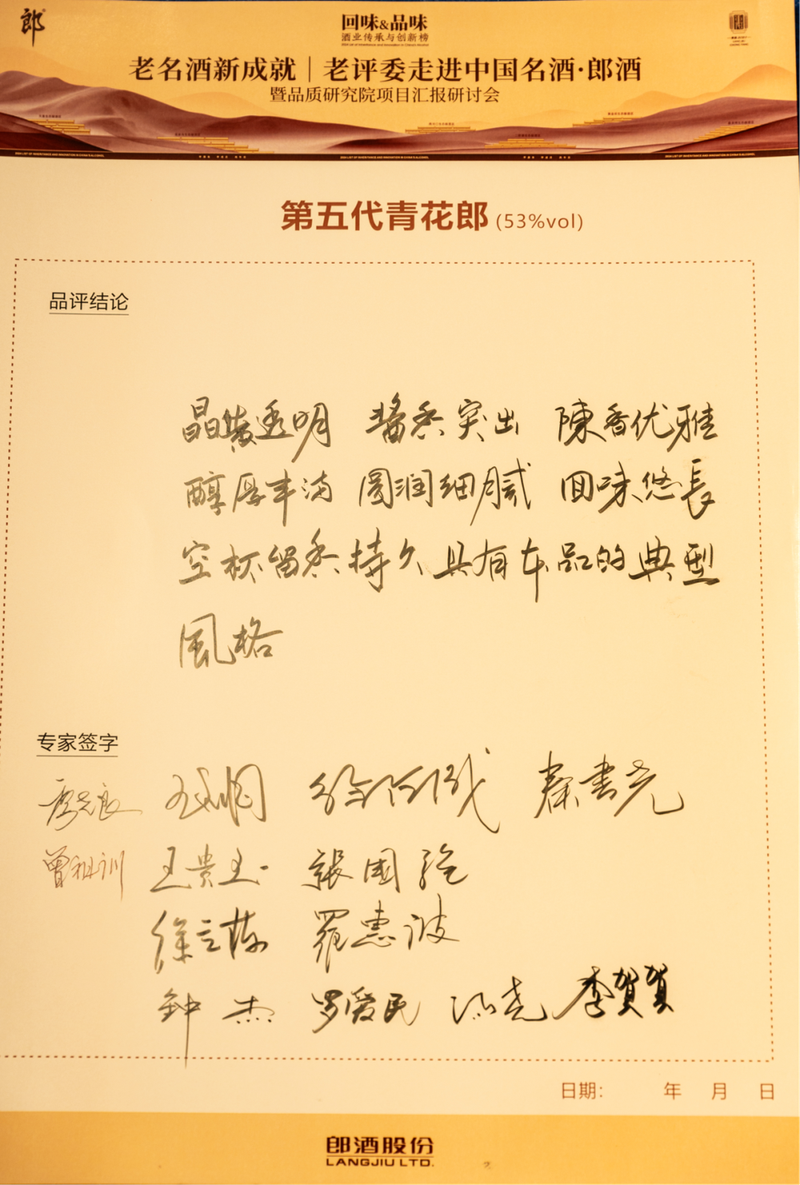 郎
回味&品味
酒业传承与创新榜
老名酒新成就｜老评委走进中国名酒·郎酒
暨品质研究院项目汇报研讨会
第五代青花郎(53%vol)
品评结论
晶黄透明 酱香突出 陳香优雅
醇厚丰满 圆润细腻 回味悠長
空杯留香持久具有本品的典型
風格
专家签字
季克良
曾祖训 王贵玉 張國强
罗惠波
钟杰 罗爱民 沈尧 李贺贺
日期： 年 月 日
郎酒股份
LANGJIU LTD.